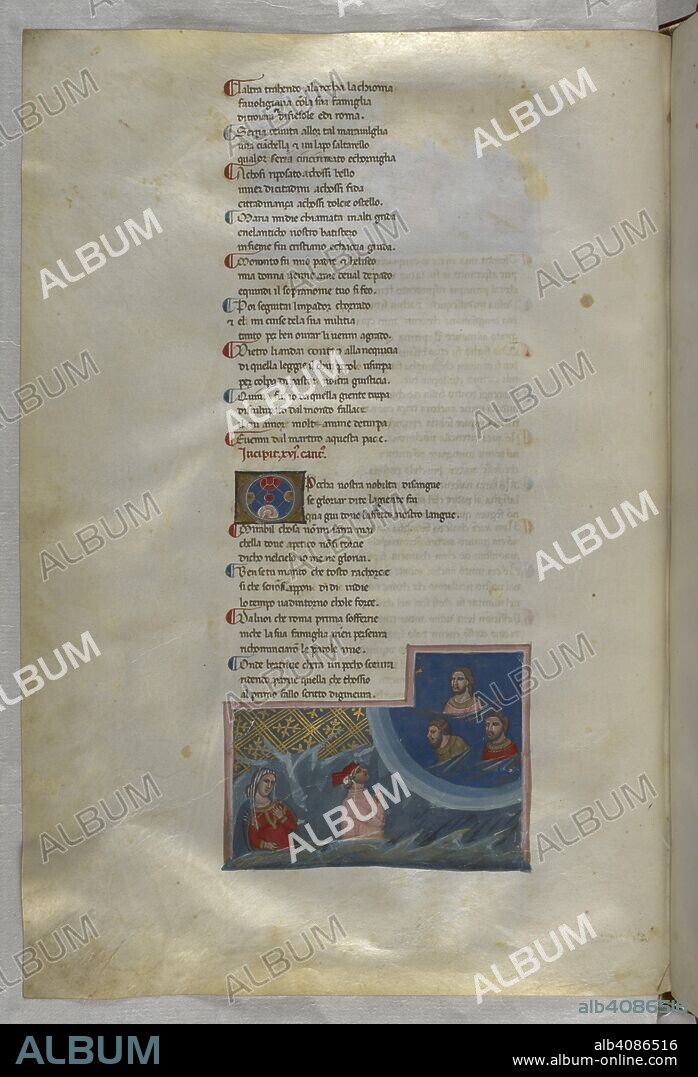 Laltra trahendo ala rocha la chioma
favoligiava cola sua famiglia
di troiani di fiesole e di roma.
Seria tenuta allor tal maraviglia
una cianchella 
qualor seria cincinnato e chorniglia
A chosi riposato a chossi bello
viver di citadini a chossi fida
cittadinança a chossi dolcie ostello.
Maria mi die chiamata in alti grida
e nel anticho nostro batisteo
insieme fui cristiano e chacia guida.
Moronto fu mio padre Eheliseo
mia donna venne a me di val de pado
e quindi il sopranome tuo si feo.
Poi seguitai limpador chorrado
el mi cinse dela sua militia
tanto per ben ovrar li venni a grado.
Dietro li andai contra alla nequicia
di quella leggie il popol usurpa
per colpa di vostra giusticia.
Quivi fu io da quella giente turpa
dal mondo fallace
il cui amor molte anime deturpa
E venni dal martiro a questa pace.
Incipit xvj. cant.
Pocha nostra nobilta di sangue
se gloriar di te la giente fai
qua giu dove laffetto nostro langue.
Mirabil chosa no mi sara mai
che la dove apetito non si torcie
dicho nel cielo io me ne gloriai.
Ben se tu manto che tosto rachorcie
si che se non sappon di di in die
lo tempo va dintorno chole force.
Dal voi che roma prima sofferie
in che la sua famiglia men persevra
richominciaro le parole mie.
Onde beatrice chera un pocho scevra
ridendo parve quella che tossio
al primo fallo scritto di gineura.
ALBUM
alb4086516
ALBUM
alb4086516
www.album-online.com